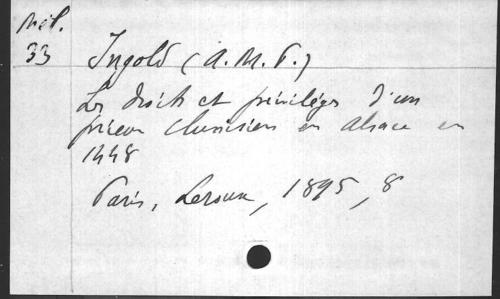 Mél.
33
Ingold (A. M. P.)
Les droits et privilèges d'un
prieur clunisien en Alsace en
1448
Paris, Leroux, 1895, 8